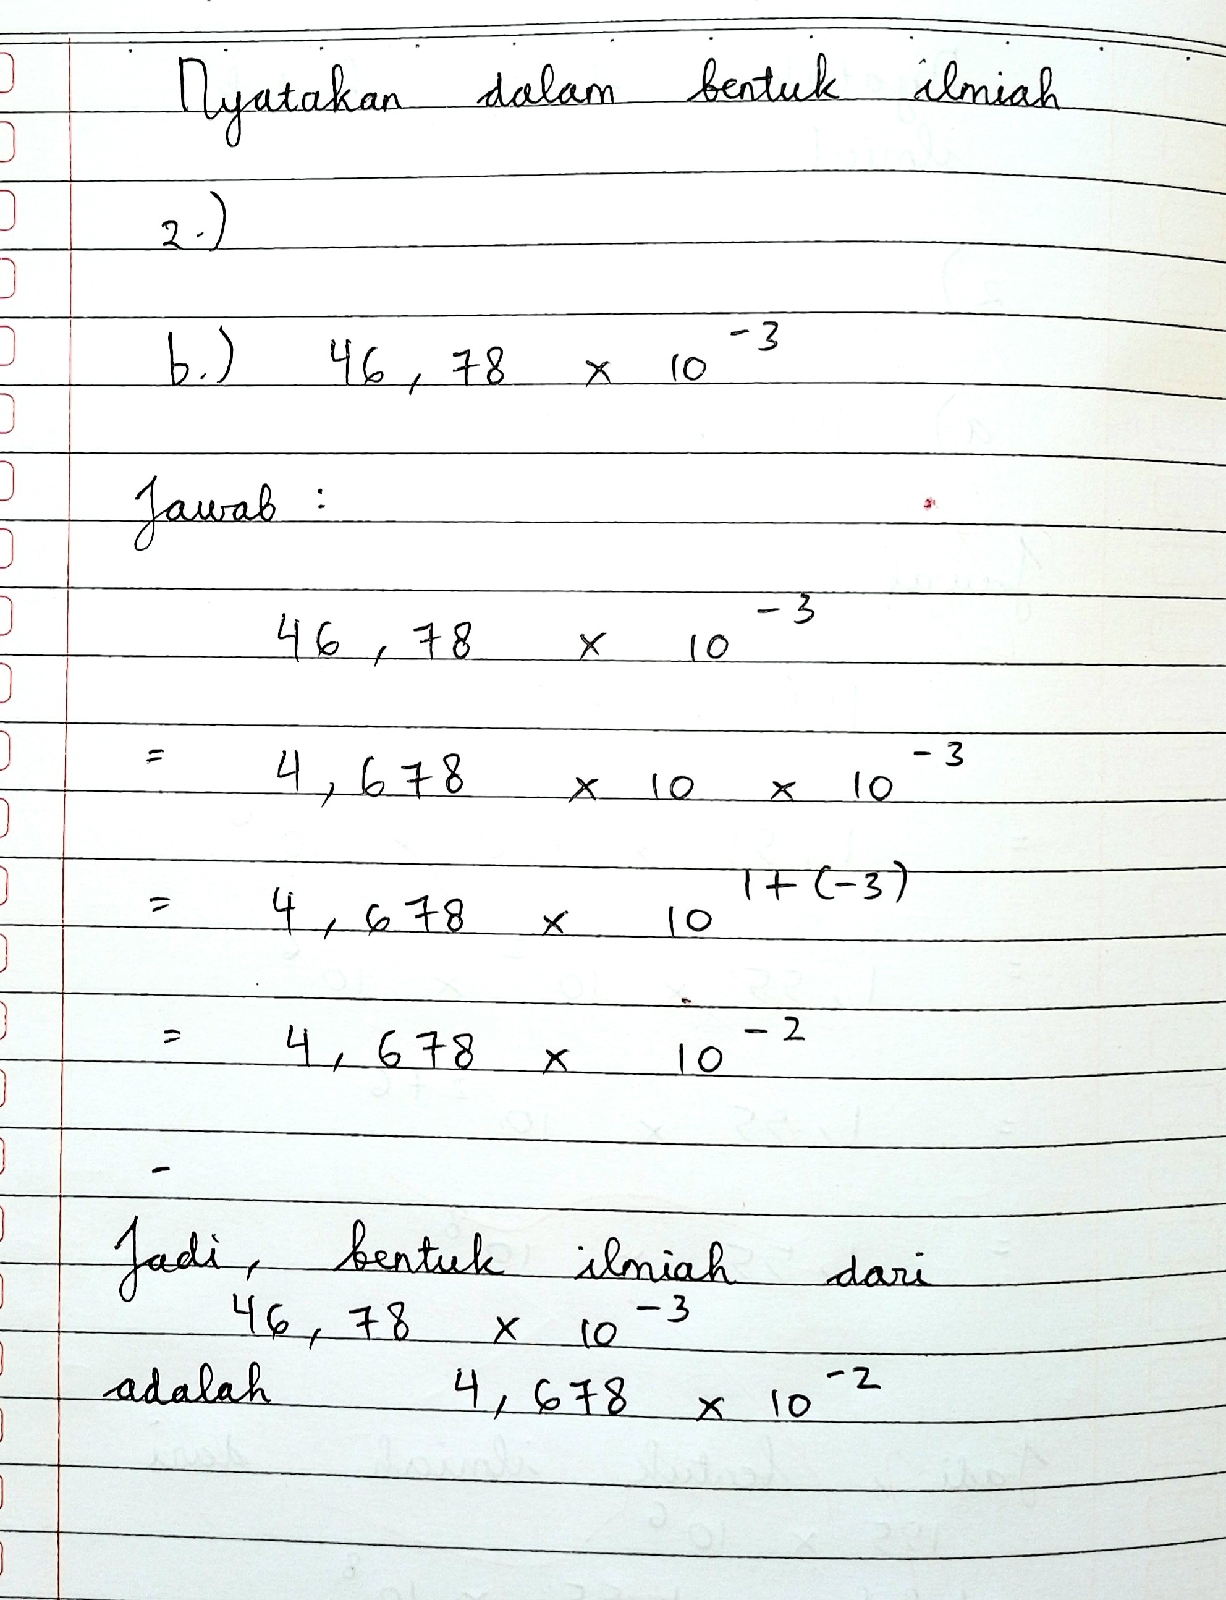 Nyatakan dalam bentuk ilmiah
2.)
b.) 46,78 x 10⁻³
Jawab :
46,78 x 10⁻³
= 4,678 x 10 x 10⁻³
= 4,678 x 10¹⁺⁽⁻³⁾
= 4,678 x 10⁻²
-
Jadi, bentuk ilmiah dari
46,78 x 10⁻³
adalah 4,678 x 10⁻²